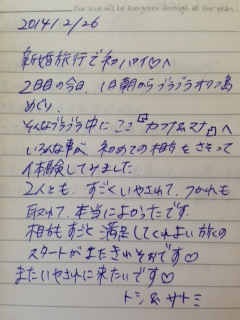 Our love will be Evergreen through all the years.
2014/2/26
新婚旅行で初ハワイ♡へ
2日目の今日、1日朝からブラブラオアフ島
めぐり。
そんなブラブラ中にここ『カフナ&マナ』へ
いろんな事が 初めての相方をさそって
体験してみました。
2人とも、すごくいやされて、つかれも
取れて、本当によかったです。
相方もすごく満足してくれよい旅の
スタートがまたきれそうです♡
またいやされに来たいです♡
トシ&サトミ